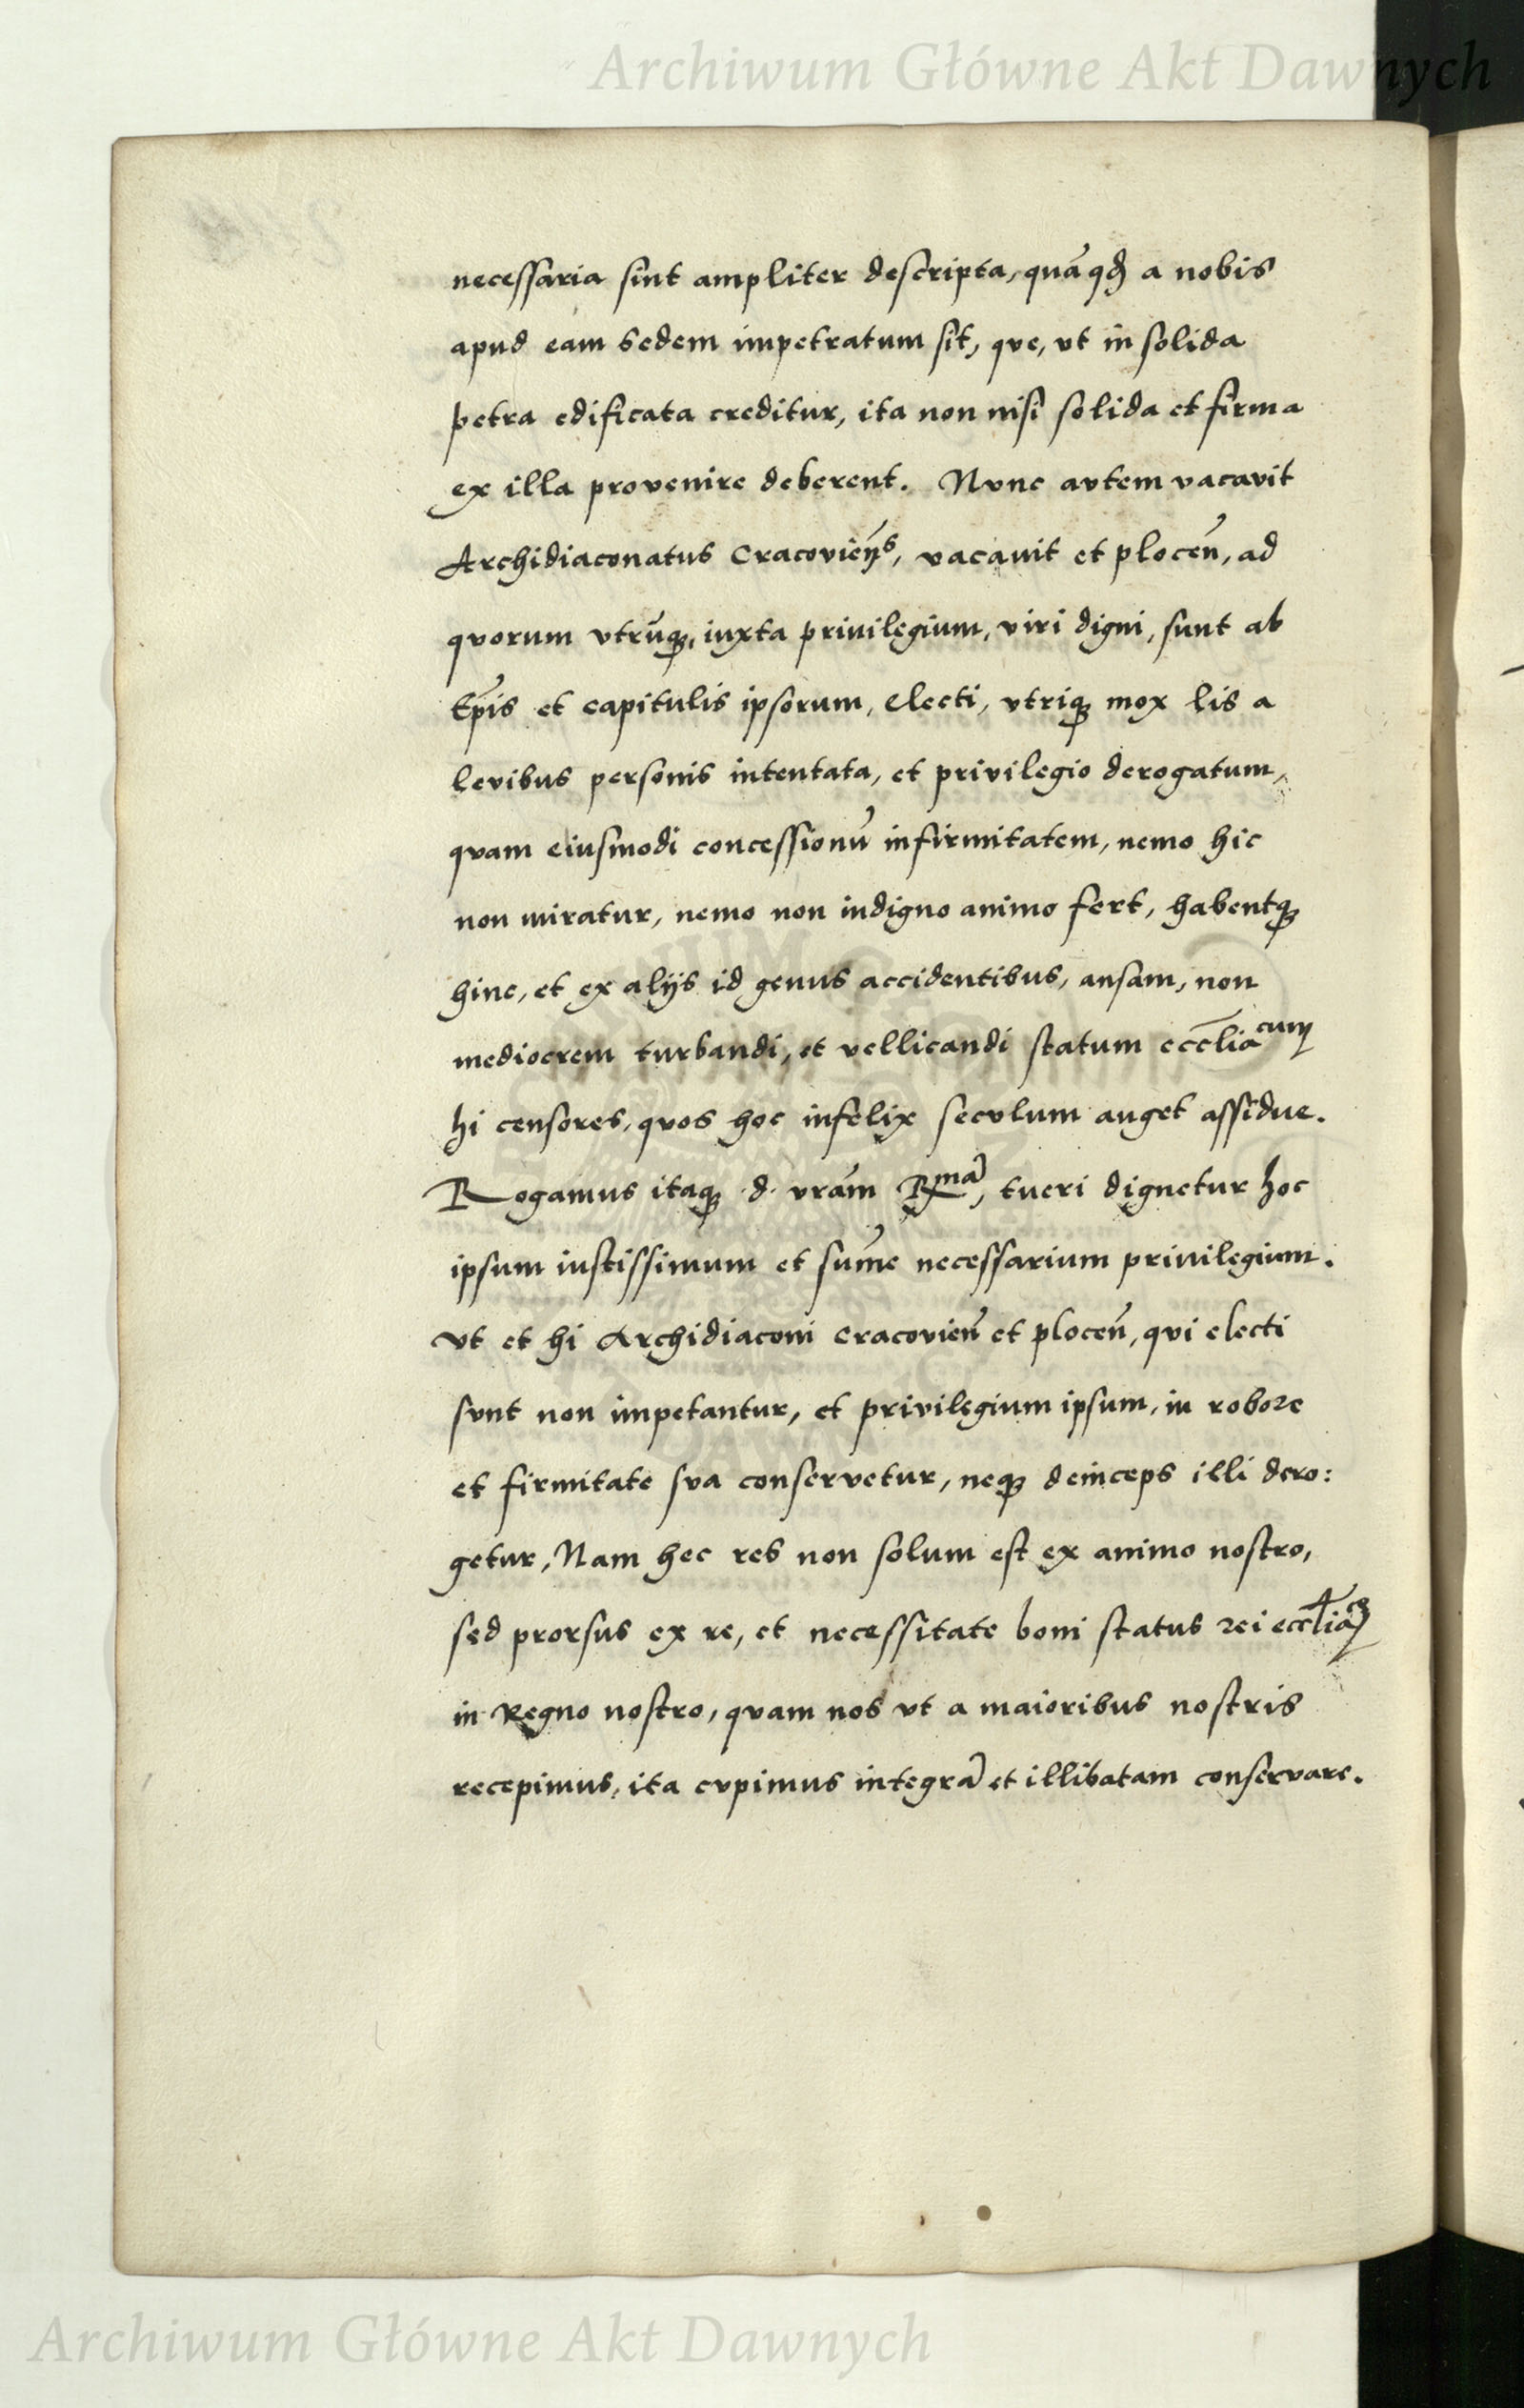 Archiwum Główne Akt Dawnych
necessaria sint ampliter descripta, quā qđ a nobis
apud eam sedem impetratum sit, que, vt in solida
petra edificata creditur, ita non nisi solida et firma
ex illa provenire deberent. Nvnc avtem vacavit
Archidiaconatus Cracovień̄s, vacauit et plocen̄, ad
qvorum vtrūqꝫ, iuxta priuilegium, viri digni, sunt ab
Ep̄is et capitulis ipsorum, electi, vtriqꝫ mox lis a
levibus personis intentata, et privilegio derogatum,
qvam eiusmodi concessionū infirmitatem, nemo hic
non miratur, nemo non indigno animo fert, habentqꝫ
hinc, et ex alijs id genus accidentibus, ansam, non
mediocrem turbandi, et vellicandi statum eccl̄iacum
hi censores, qvos hoc infelix secvlum auget assidue.
Rogamus itaqꝫ d. vrām R̄mā, tveri dignetur hoc
ipsum iustissimum et sum̄e necessarium priuilegium.
vt et hi Archidiaconi cracovien̄ et plocen̄, qvi electi
svnt non impetantur, et privilegium ipsum, in robore
et firmitate sva conservetur, neqꝫ deinceps illi dero:
getur, Nam hec res non solum est ex animo nostro,
sed prorsus ex re, et necessitate boni status rei eccl̄iacę
in Regno nostro, qvam nos vt a maioribus nostris
recepimus, ita cvpimus integrā et illibatam conservare.
Archiwum Główne Akt Dawnych